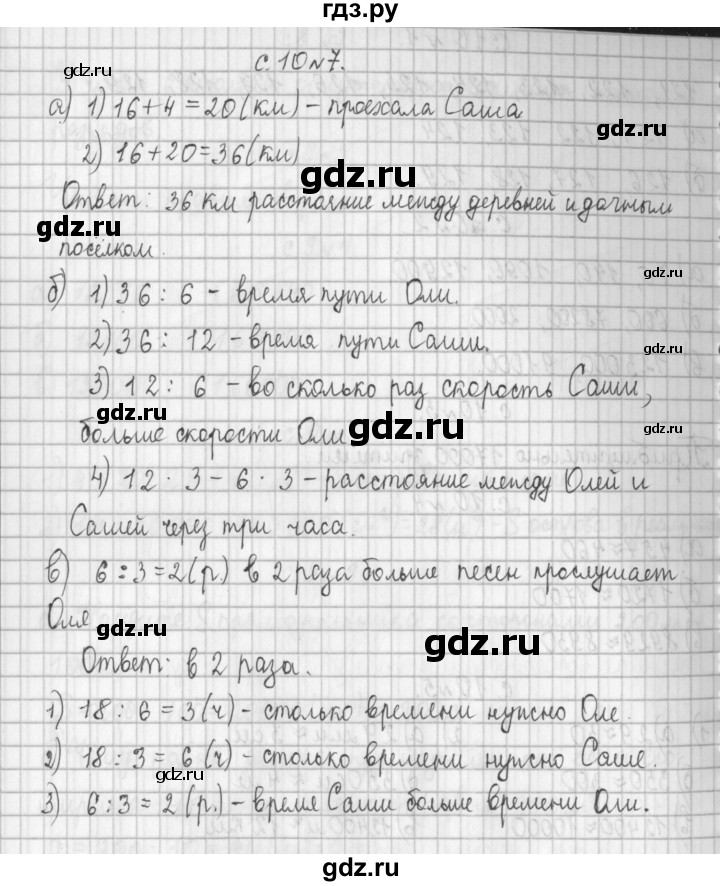 гдз.ру
с. 10 №7.
gdz.ru
gdz.ru
а) 1) 16+4 = 20 (км) - проехала Саша
gdz.ru
2) 16+20=36 (км)
gdz.ru
Ответ: 36 км расстояние между деревней и дачным
gdz.ru
посёлком.
gdz.ru
б) 1) 36 : 6 - время пути Оли.
2) 36 : 12 - время пути Саши.
gdz.ru
3) 12 : 6 - во сколько раз скорость Саши,
gdz.ru
больше скорости Оли
gdz.ru
4) 12 · 3 - 6 · 3 - расстояние между Олей и
gdz.ru
Сашей через три часа.
gdz.ru
в) 6 : 3 = 2 (р.) в 2 раза больше песен прослушает
gdz.ru
Оля
gdz.ru
gdz.ru
Ответ: в 2 раза.
1) 18 : 6 = 3 (ч) - столько времени нужно Оле.
gdz.ru
2) 18 : 3 = 6 (ч) - столько времени нужно Саше.
gdz.ru
3) 6 : 3 = 2 (р.) - время Саши больше времени Оли.
gdz.ru
gdz.ru
gdz.ru